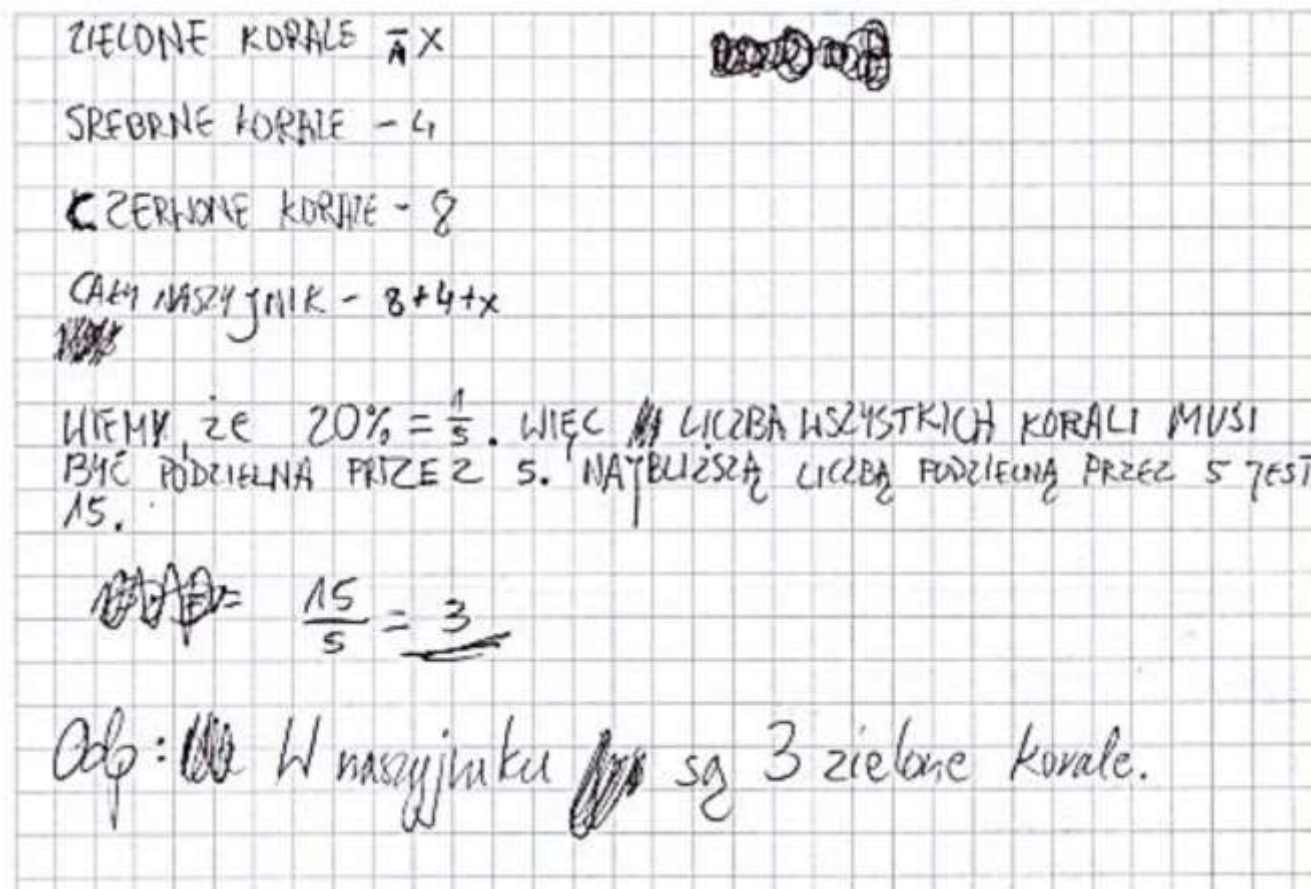 ZIELONE KORALE - X
SREBRNE KORALE - 4
CZERWONE KORALE - 8
CAŁY NASZYJNIK - 8+4+x
WIEMY, że 20% = 1/5. WIĘC LICZBA WSZYSTKICH KORALI MUSI
BYĆ PODZIELNA PRZEZ 5. NAJBLIŻSZĄ LICZBĄ PODZIELNĄ PRZEZ 5 JEST
15.
15/5 = 3
Odp: W naszyjniku są 3 zielone korale.